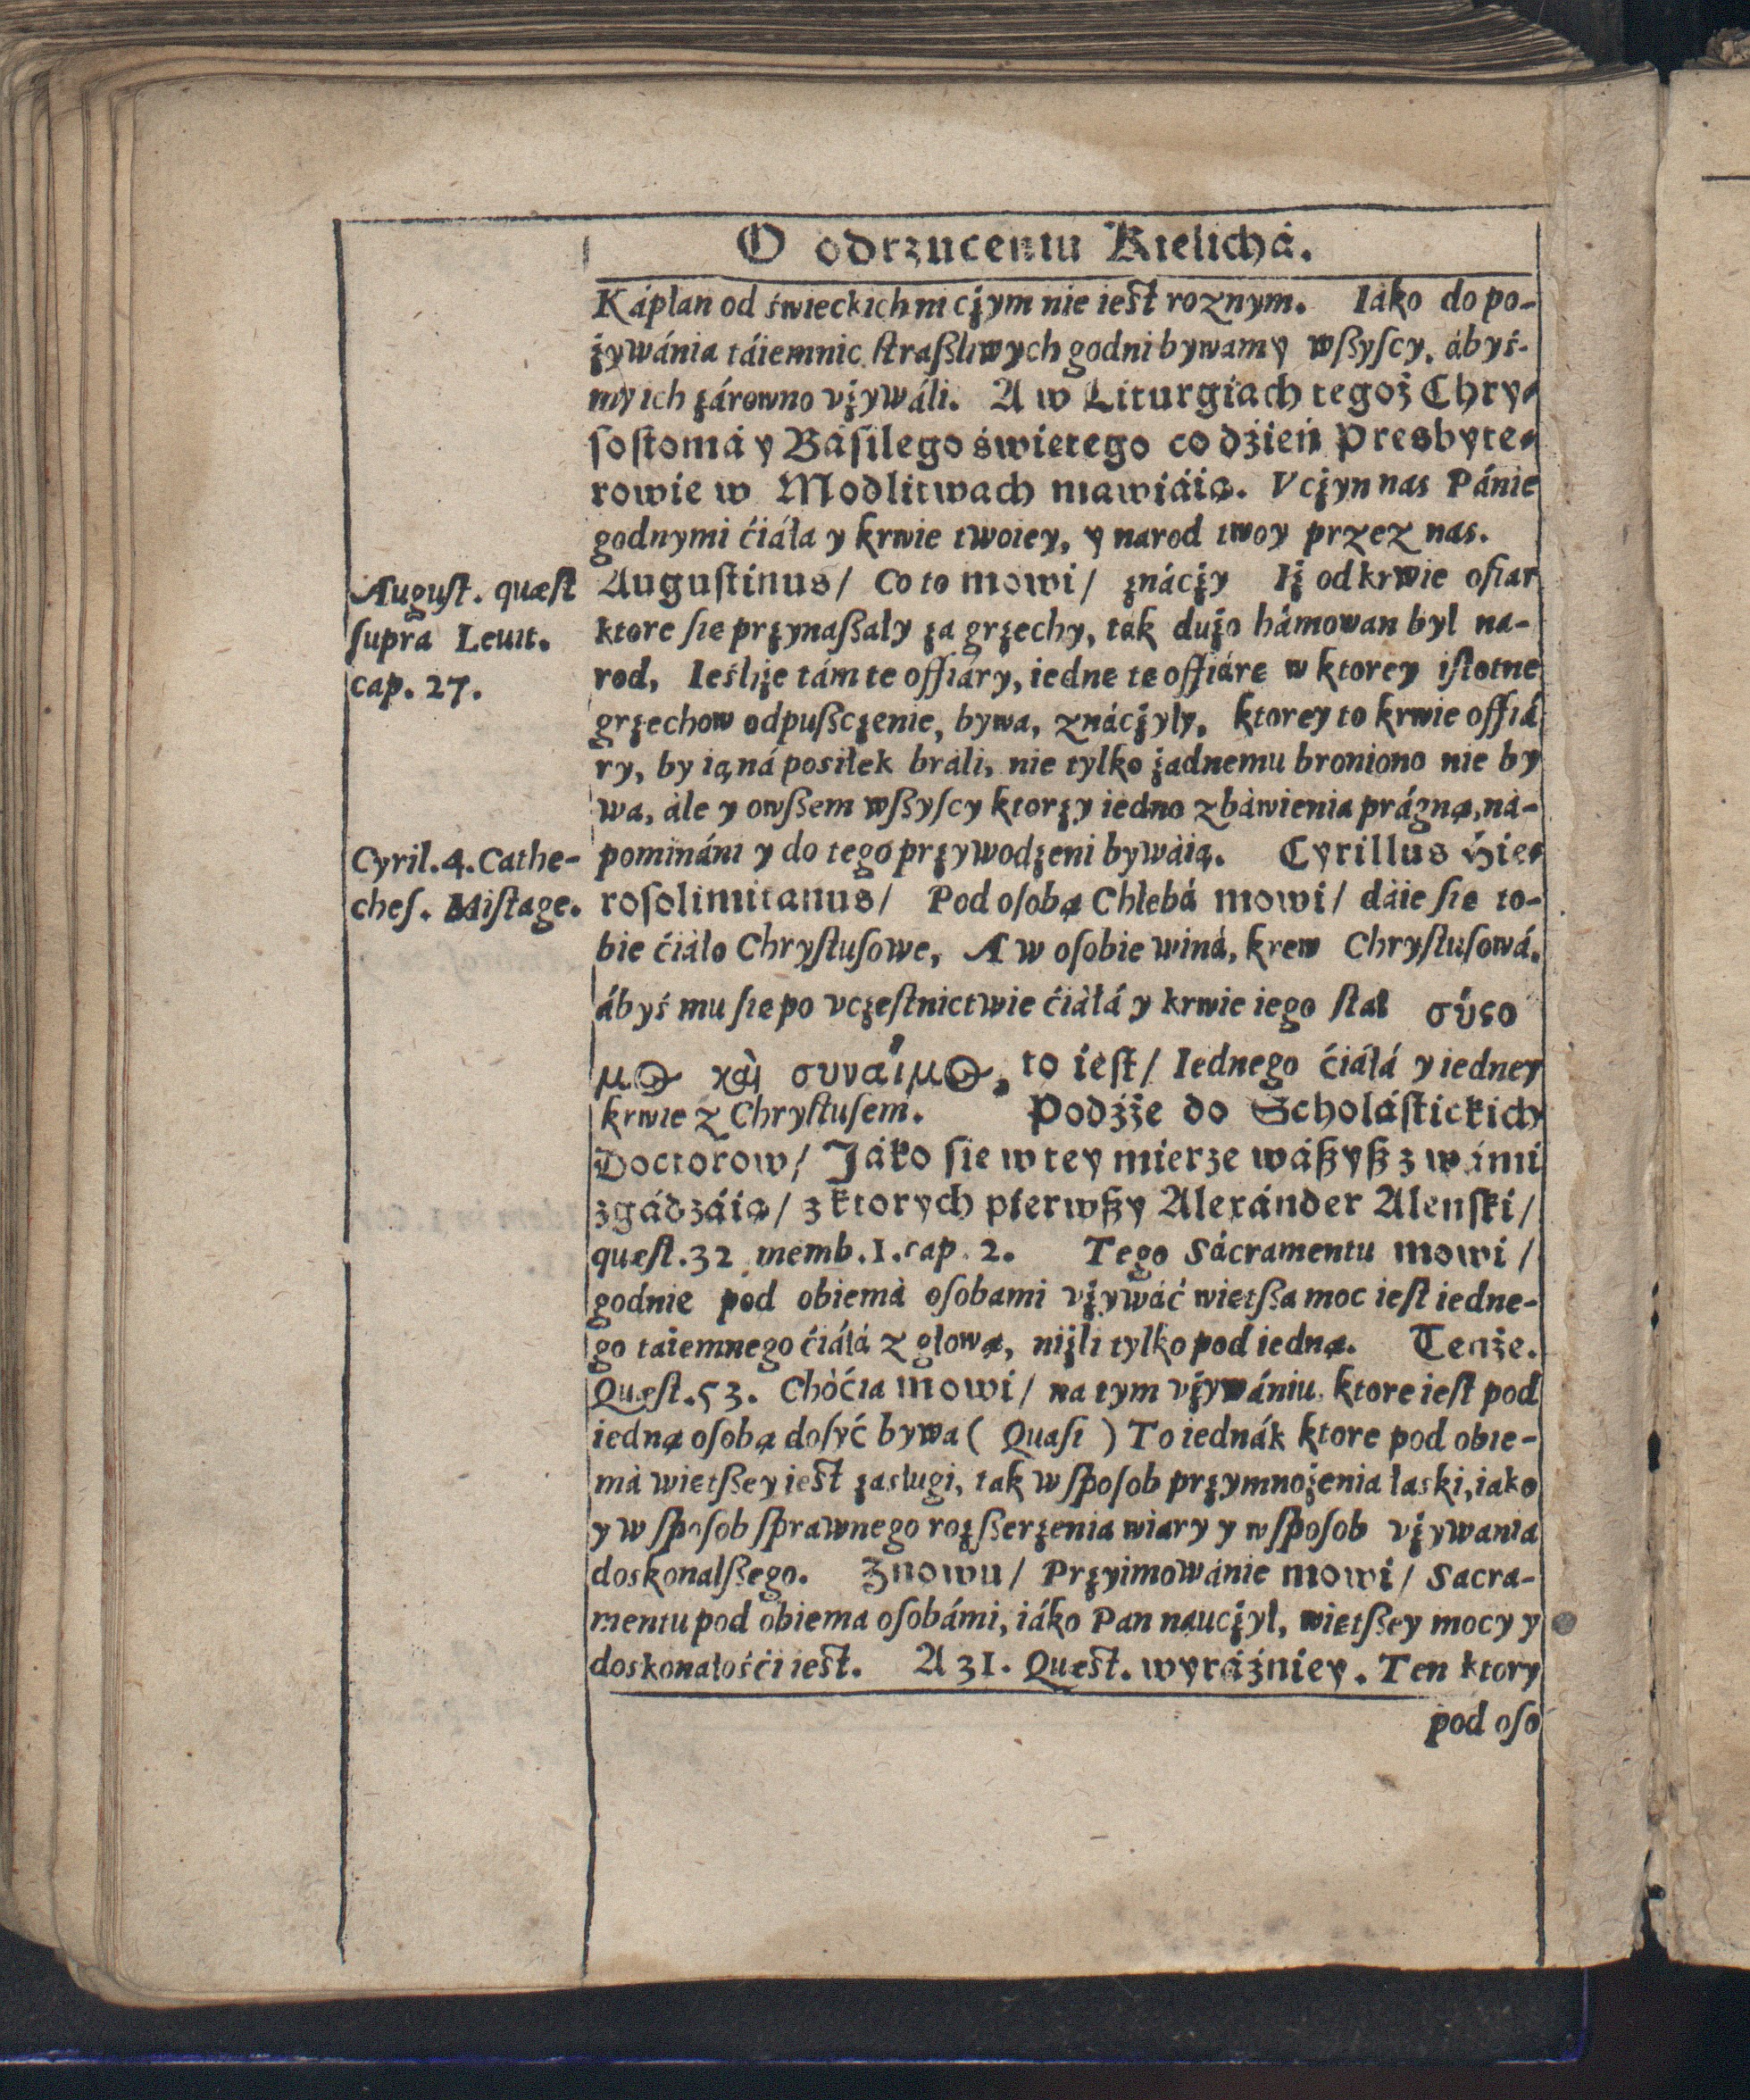 O odrzuceniu Kielichá.
Káplan od świeckich ni cżym nie iest roznym. Iáko do po-
żywánia táiemnic straßliwych godni bywamy wßyſcy, ábyś-
my ich zárowno vżywáli. A w Liturgiach tegoż Chry-
soſtomá y Básilego świętego co dźień Presbyte-
rowie w Modlitwach mawiáią. Vcżyn nas Pánie
godnymi ćiáła y krwie twoiey, y narod twoy przez nas.
August. quæst
supra Leuit.
cap. 27.
Auguſtinus/ Co to mowi/ znácży Iż od krwie ofiar
ktore ſie przynaßały za grzechy, tak dużo hámowan był na-
rod, Ieśliże tám te offiáry, iedne te offiáre w ktorey iſtotne
grzechow odpußczenie, bywa, znácżyły, ktorey to krwie offiá
ry, by ią ná posiłek bráli, nie tylko żadnemu broniono nie by
wa, ále y owßem wßyſcy ktorzy iedno zbáwienia prágną, ná-
Cyril. 4. Cathe-
cheſ. Miſtage.
pomináni y do tego przywodzeni bywáią. Cyrillus Hie-
roſolimitanus/ Pod oſobą Chlebá mowi/ dáie ſie to-
bie ćiáło Chryſtuſowe, A w oſobie winá, krew Chryſtuſowá.
ábyś mu ſie po vczeſtnictwie ćiáłá y krwie iego ſtał σύςο
μος καὶ συναίμος, to ieſt/ Iednego ćiáłá y iedney
krwie z Chryſtuſem. Podźże do Scholáſtickich
Doctorow/ Jáko ſie w tey mierze wáßyß z wámi
zgádzáią/ z ktorych pierwßy Alexánder Alenſki/
quæſt. 32 memb. 1. cap. 2. Tego Sácramentu mowi/
godnie pod obiemá oſobami vżywáć wietßa moc ieſt iedne-
go taiemnego ćiáłá z głową, niżli tylko pod iedną. Tenże.
Quæſt. 53. Choćia mowi/ na tym vżywániu, ktore ieſt pod
iedną oſobą doſyć bywa ( Quaſi ) To iednák ktore pod obie-
má wietßey iest zasługi, tak w ſpoſob przymnożenia łaski, iako
y w ſpoſob ſprawnego rozßerzenia wiary y w ſpoſob vżywania
doskonalßego. Znowu/ Przyimowánie mowi/ Sacra-
mentu pod obiema oſobámi, iáko Pan naucżył, wietßey mocy y
doskonałośći iest. A 31. Quæst. wyráźniey. Ten ktory
pod oſo